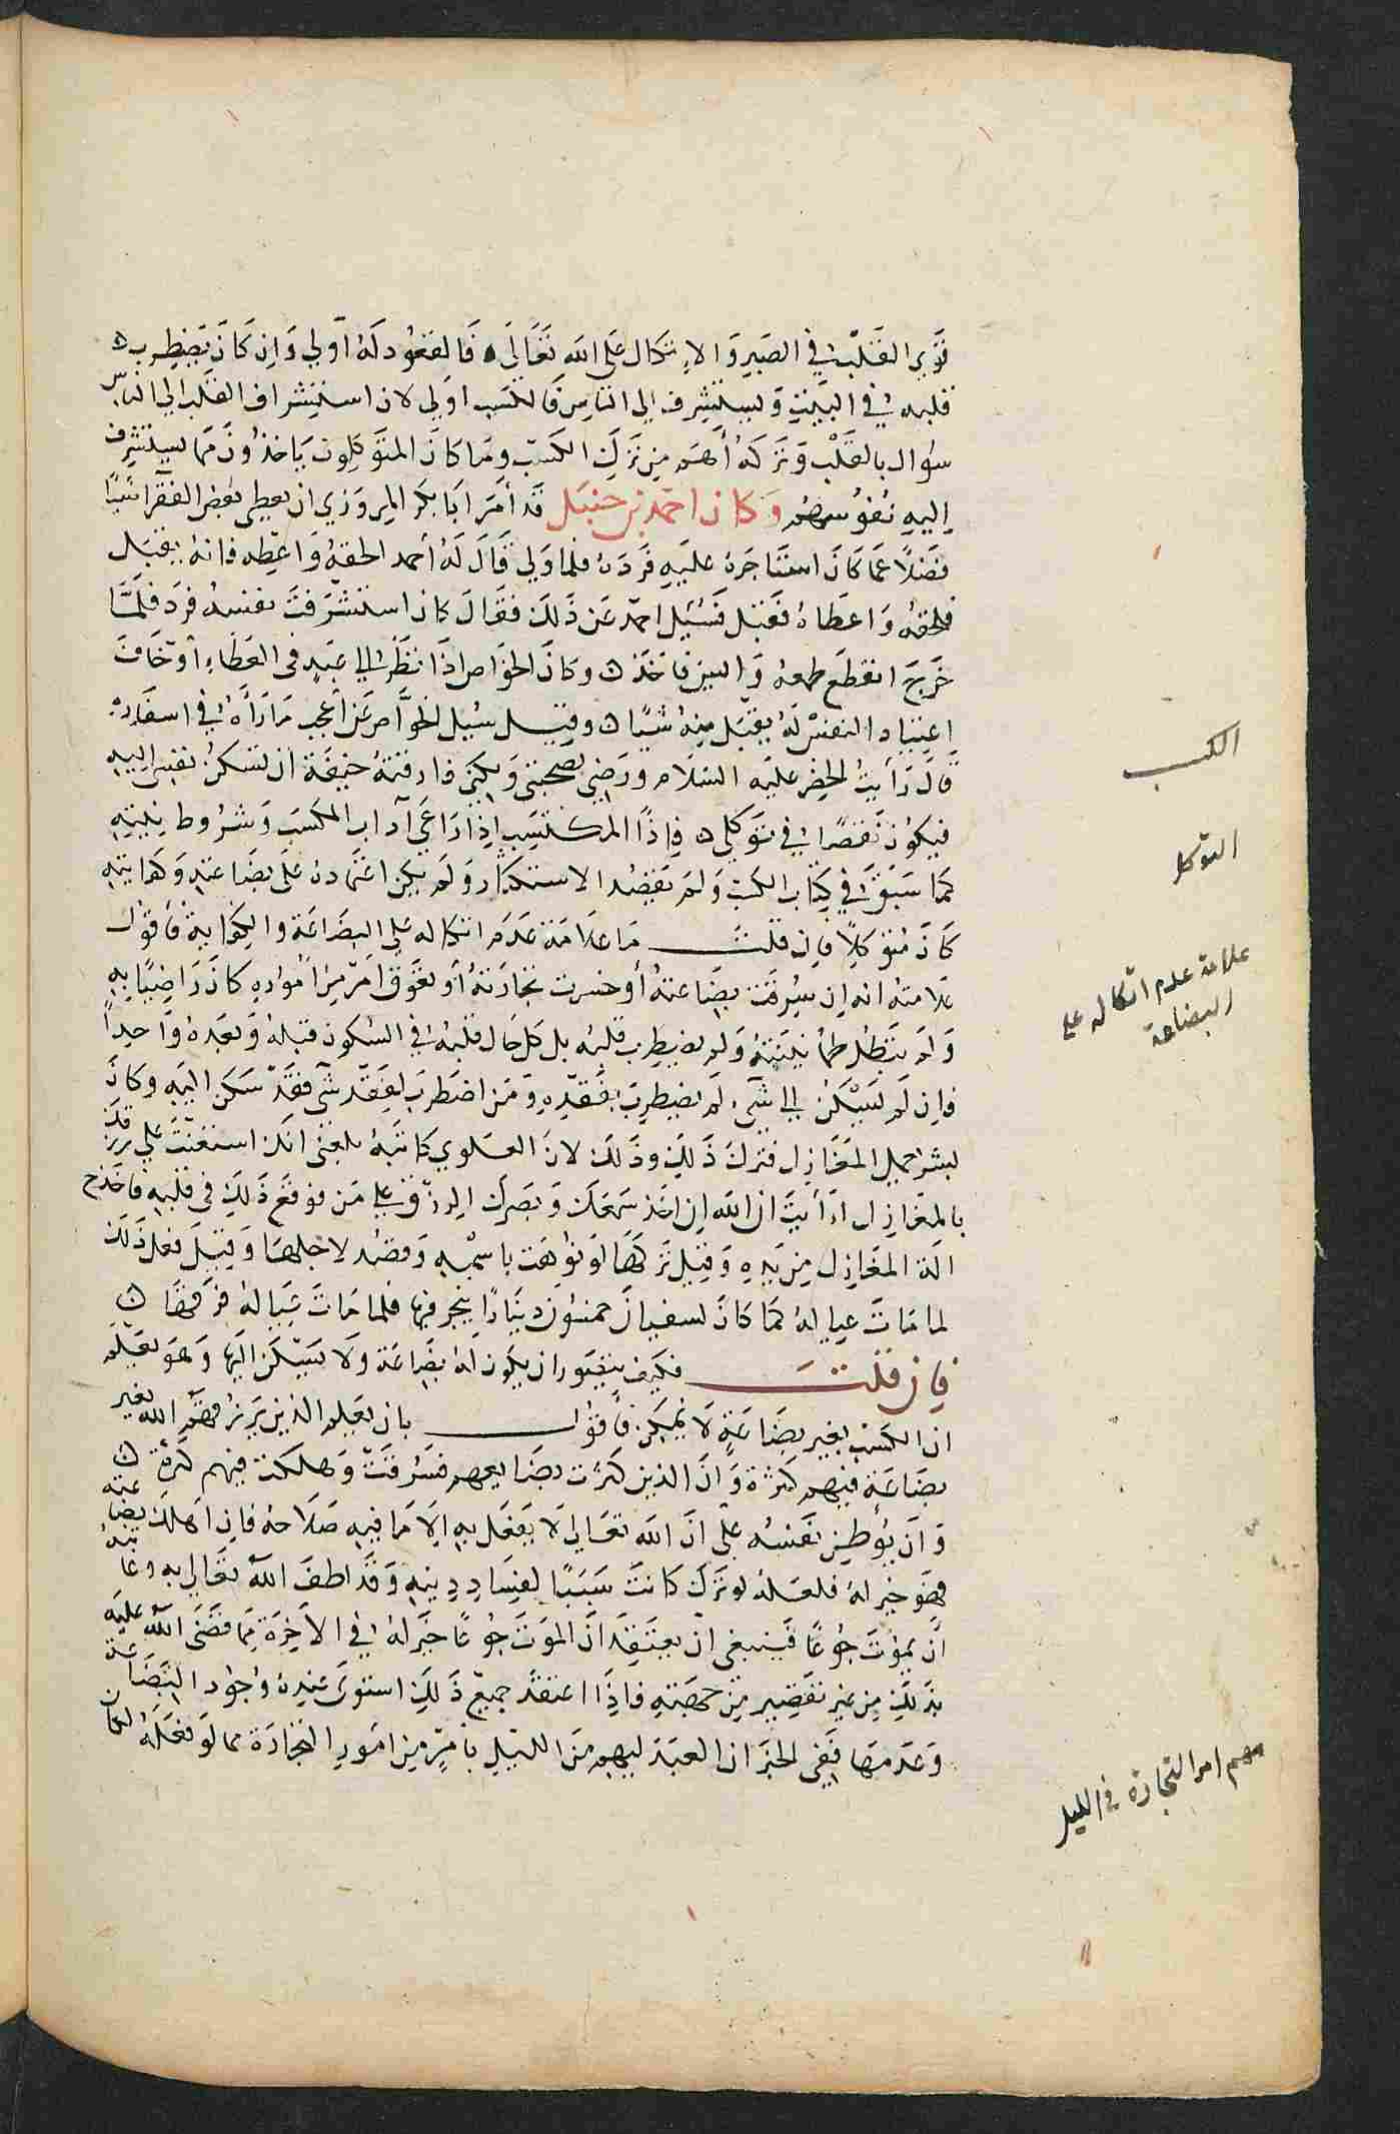 قوي القلب في الصبر والاتكال على الله تعالى فالقعود له اولي وان كان يضطرب
قلبه في البيت ويستشرف الي الناس فالكسب اولي لان استشراف القلب الي الناس
سوال بالقلب وتركه أهم من ترك الكسب وما كان المتوكلون ياخذون مما يستشرف
اليه نفوسهم وكان احمد بن حنبل قد أمر ابا بكر المروزي ان يعطي بعض الفقرا شيًا
فضلاً عما كان استاجره عليه فرده فلما ولي قال له أحمد الحقه واعطه فانه يقبل
فلحقه واعطاه فقبل فسئل احمد عن ذلك فقال كان استشرفت نفسه فرد فلمّا
خرج انقطع طمعه وايس فاخذ ن وكان الخواص اذا نظر الي عبد في العطاء او خاف
اعتياد النفس له يقبل منه شيًا ن وقيل سئل الخواص عن أعجب ما رأه في اسفاره
قال رأيت الخضر عليه السلام ورضي بصحبتي ولكني فارقته خيفة ان تسكن نفسي اليه
فيكون نقصًا في توكلي ن فاذًا المكتسب اذا راعي آداب الكسب وشروط نيته
كما سبق في كتاب الكسب ولم يقصد الاستكثار ولم يكن اعتماده على بضاعته وكفايته
كان متوكلًا فان قلت ما علامة عدم اتكاله علي البضاعة والكفاية فأقول
علامته انه ان سرقت بضاعته أو خسرت تجارته أو تعوق امر من أموره كان راضيًا به
ولم تبطل طمأنينته ولم يضطرب قلبه بل كل حال قلبه في السكون قبله وبعده واحدا
فان لم يسكن الي شي لم يضطرب بفقده ومن اضطرب لفقد شي فقد سكن اليه وكان
بشر يعمل المغازل فترك ذلك وذلك لان العلوي كاتبه بلغني انك استغنت علي رزقك
بالمغازل ارأيت ان الله ان اخذ سمعك وبصرك الرزق علي من فوقع ذلك في قلبه فاخرج
الة المغازل من يده وقيل تركها لو نوهت باسمه وقصد لاجلها وقيل فعل ذلك
لما مات عياله كما كان لسفيان خمسون دينارًا يتجر فيها فلما مات عياله فرقها ن
فان قلت فكيف يتصور ان يكون له بضاعة ولا يسكن اليها وهو يعلم
ان الكسب بغير بضاعة لا يمكن فأقول بان يعلم الذين يرزقهم الله بغير
بضاعة فيهم كثرة وان الذين كثرت بضايعهم فسرقت وهلكت فيهم كثرة ن
وان يوطن نفسه علي ان الله تعالي لا يفعل به الا ما فيه صلاحه فان اهلك بضاعته
فهو خير له فلعله لو ترك كانت سببًا لفساد دينه وقد لطف الله تعالي به وغايته
ان يموت جوعًا فينبغي ان يعتقد ان الموت جوعًا خير له في الاخرة مما قضى الله عليه
بذلك من غير تقصير من جهته فاذا اعتقد جميع ذلك استوى عنده وجود البضاعة
وعدمها ففي الخبر ان العبد ليهم من الليل بامر من امور التجارة مما لو فعله لكان
الكسب
التوكل
علامة عدم اتكاله علي
البضاعة
مهم امر التجارة في الليل